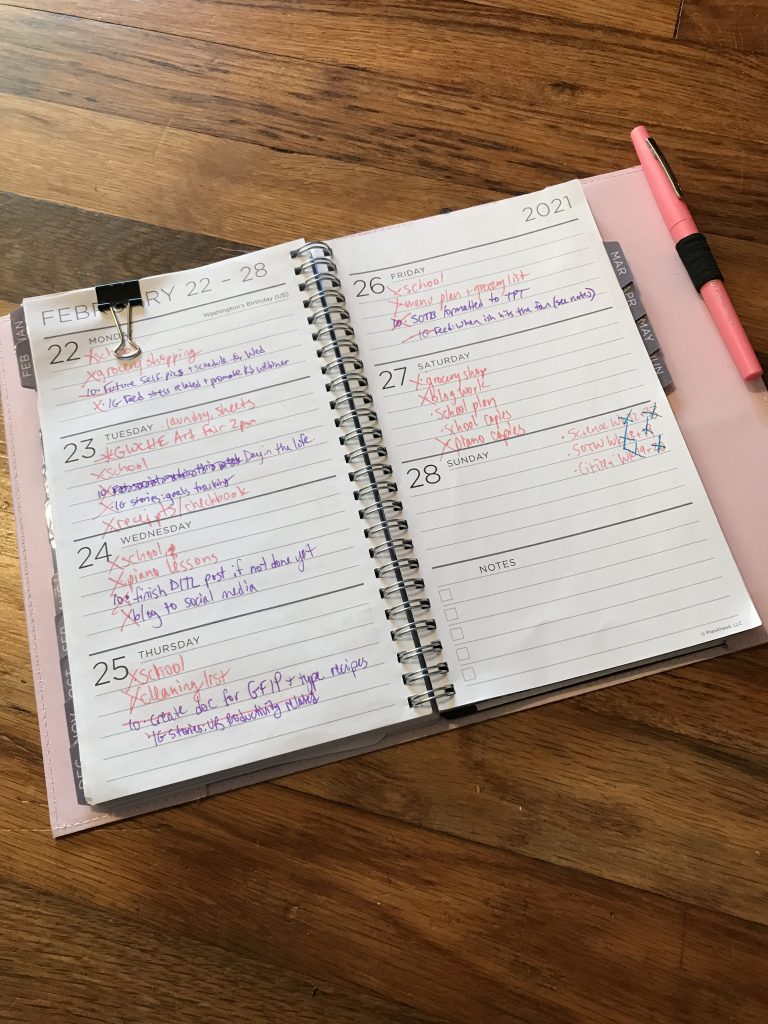 FEBRUARY 22 - 28
Washington's Birthday (US)
22 MONDAY
school
grocery shopping
10: Future Self pics + schedule for Wed
IG Feed stress related + promote webinar
23 TUESDAY laundry, sheets
Art Fair 2pm
school
10: Day in the life
IG stories: goals tracking
receipts/checkbook
24 WEDNESDAY
school
piano lessons
10: finish DITL post if not done yet
blog to social media
25 THURSDAY
school
cleaning list
10: create doc for GFIP + type recipes
IG stories: productivity related
2021
26 FRIDAY
school
menu plan + grocery list
10: SOTB formatted to TPT
IG Feed: When ish hits the fan (see notes)
27 SATURDAY
grocery shop
blog work
School plan
School copies
piano copies
28 SUNDAY
Science
SOTW
Citizen
NOTES
© PlanAhead, LLC
FEB
JAN
MAR
APR
MAY
JUN
SEP
OCT
NOV
DEC